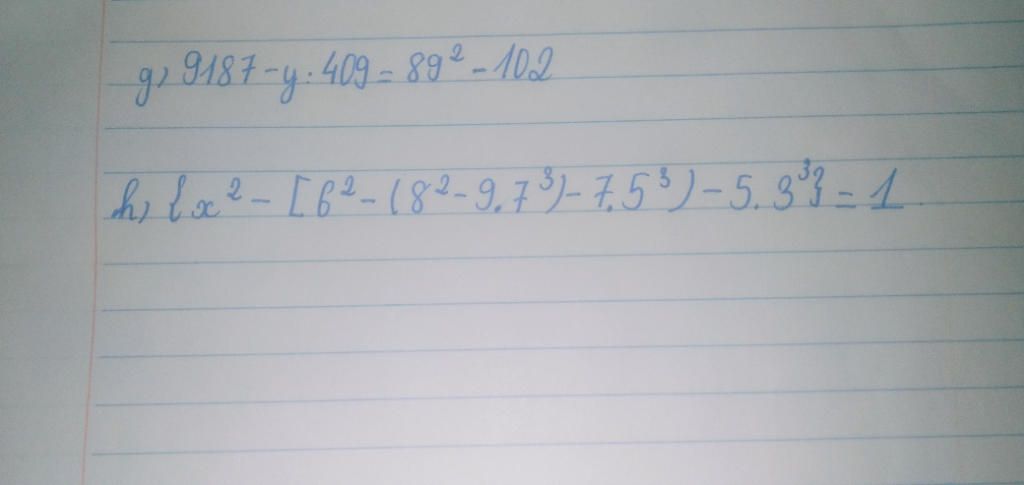 g, 9187 - y : 409 = 89² - 102
h, {x² - [6² - (8² - 9.7³) - 7.5³) - 5.3³} = 1